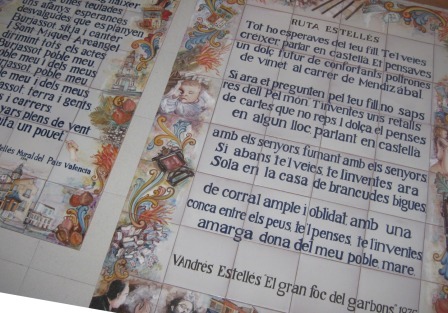 unes teulades
uns afanys esperances
desvalgudes que es planyen
Burjassot sitja i canter
Sant Miquel Arcangel
Burjassot poble meu
poble meu i dels meus
Burjassot poble meu
poble meu i dels meus
Burjassot terra i gents
i carrers
carrers plens de vent
vila un pouet
Estellés Mural del País Valencià
RUTA ESTELLÉS
Tot ho esperaves del teu fill Tel veies
creixer parlar en castella El pensaves
un dolç futur de confortants poltrones
de vimet al carrer de Mendizábal
Si ara et pregunten pel teu fill no saps
res dell Pel món T'inventes uns retalls
de cartes que no reps i dolça el penses
en algun lloc parlant en castella
amb els senyors fumant amb els senyors
Si abans tel veies te l'inventes ara
Sola en la casa de brancudes bigues
de corral ample i oblidat amb una
conca entre els peus te'l penses te l'inventes
amarga dona del meu poble mare
V.Andrés Estellés "El gran foc del garbons"